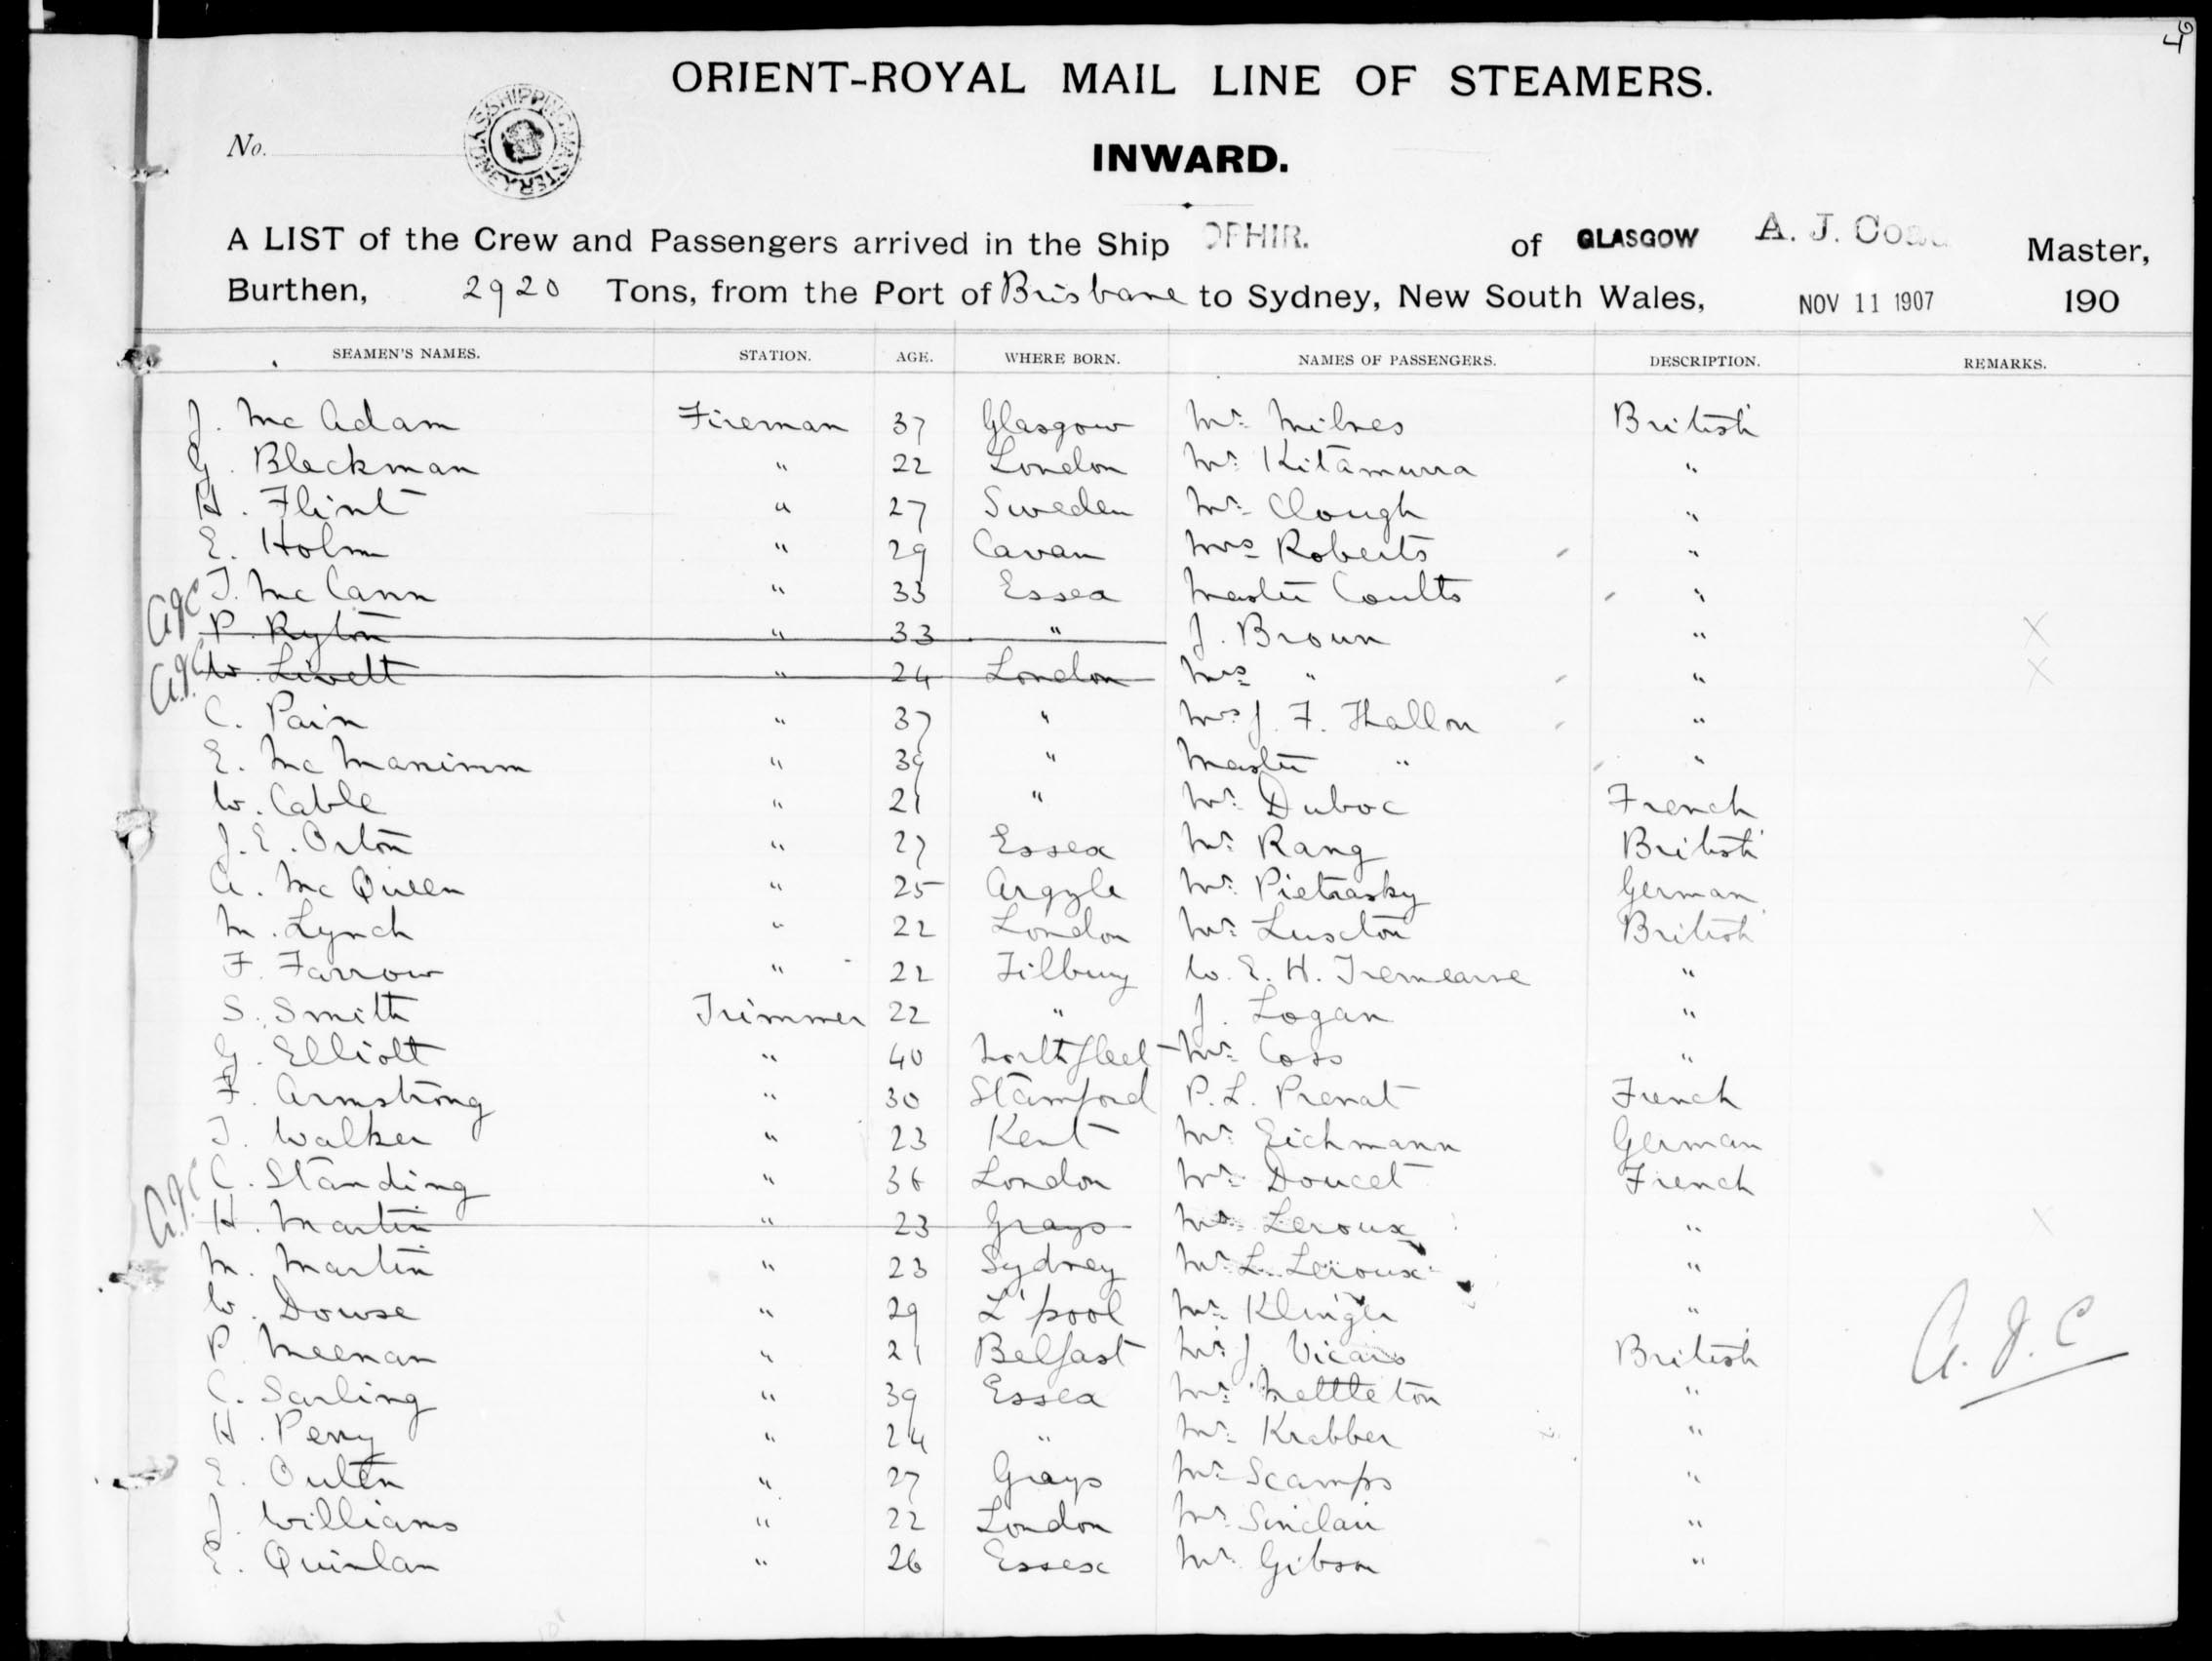 4
ORIENT-ROYAL MAIL LINE OF STEAMERS.
No.
SHIPPING MASTER SYDNEY
INWARD.
A LIST of the Crew and Passengers arrived in the Ship OPHIR. of GLASGOW A. J. Coad Master,
Burthen, 2920 Tons, from the Port of Brisbane to Sydney, New South Wales, NOV 11 1907 190
SEAMEN'S NAMES. STATION. AGE. WHERE BORN. NAMES OF PASSENGERS. DESCRIPTION. REMARKS.
J. Mc Adam Fireman 37 Glasgow Mr. Milnes British
G. Blackman " 22 London Mr. Kitamurra "
H. Flint " 27 Sweden Mr. Clough "
E. Holm " 29 Cavan Mrs Roberts "
T. Mc Cann " 33 Essex Master Coults "
AJC P. Ryton " 33 " J. Broun " X
AJC W. Livett " 24 London Mrs " " X
C. Pain " 37 " Mrs J. F. Thallon "
E. Mc Manimm " 39 " Master " "
W. Cable " 21 " Mr. Duboc French
J. E. Orton " 27 Essex Mr. Rang British
A. Mc Queen " 25 Argyle Mr. Pietrasky German
M. Lynch " 22 London Mr. Luxton British
F. Farrow " 22 Tilbury W. E. H. Tremearne "
S. Smith Trimmer 22 " J. Logan "
G. Elliott " 40 Northfleet Mr. Coss "
F. Armstrong " 30 Stamford P. L. Prenat French
T. Walker " 23 Kent Mr. Eichmann German
C. Standing " 36 London Mr. Doucet French
A.J.C H. Martin " 23 Grays Leroux " X
M. Martin " 23 Sydney Mr. L. Leroux "
W. Dowse " 29 L'pool Mr. Klingler "
P. Meenan " 21 Belfast Mr. J. Vicars British
A. J. C
C. Sarling " 39 Essex Mr. Nettleton "
H. Perry " 24 " Mr. Krabber "
E. Outen " 27 Grays Mr. Scamps "
J. Williams " 22 London Mr. Sinclair "
E. Quinlan " 26 Essex Mr. Gibson "